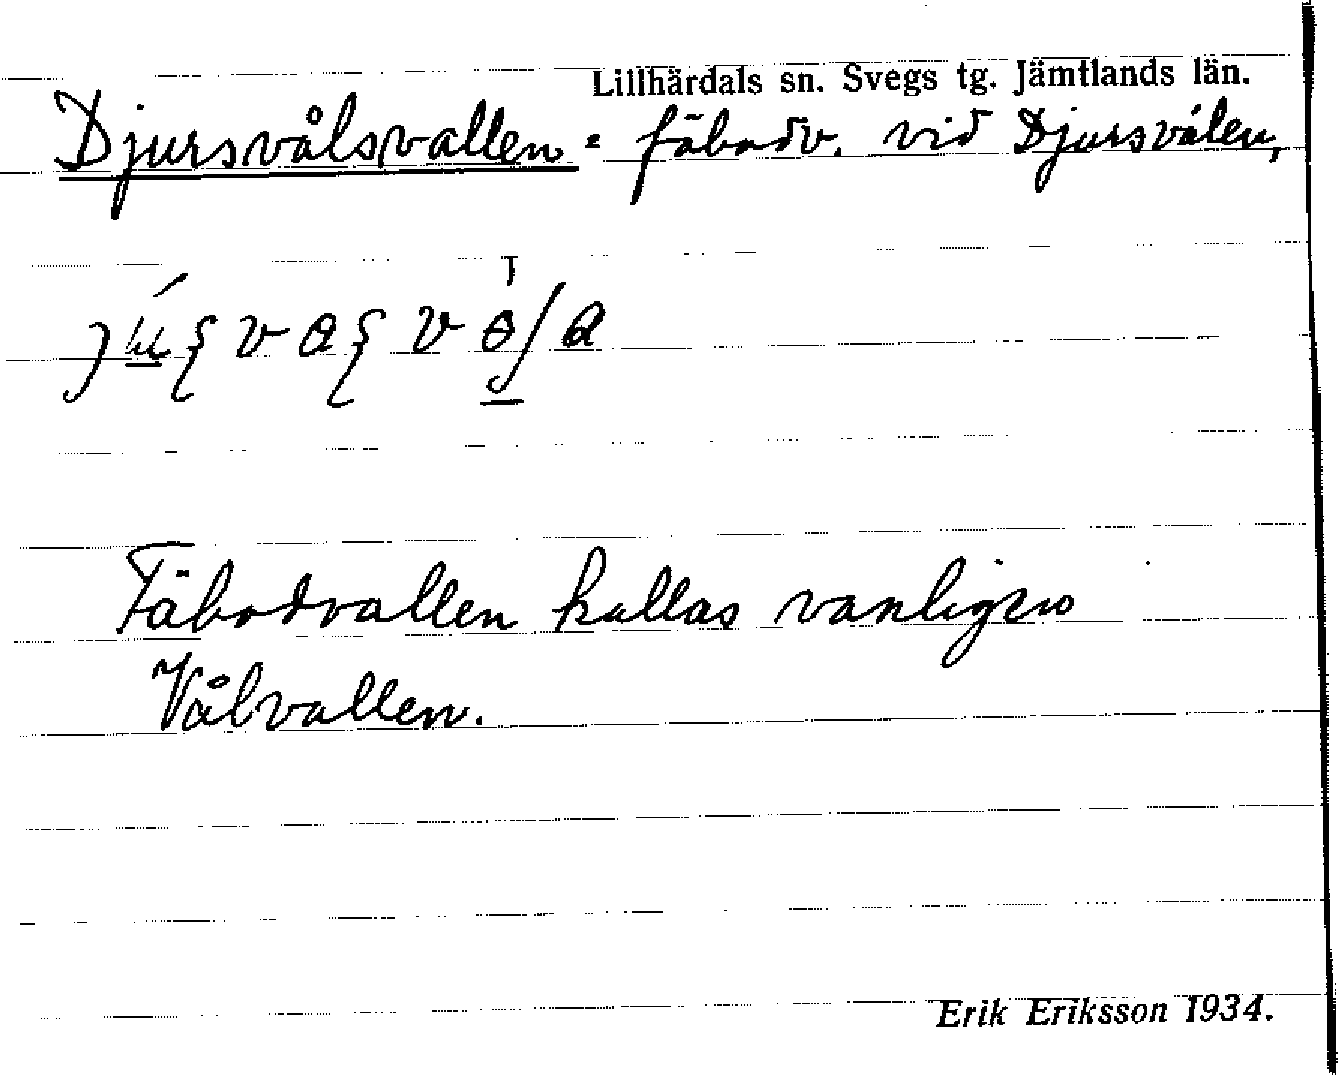 Lillhärdals sn. Svegs tg. Jämtlands län.
Djursvålsvallen = fäbodv. vid Djursvålen,
Fäbodvallen kallas vanligen
Vålvallen.
Erik Eriksson 1934.